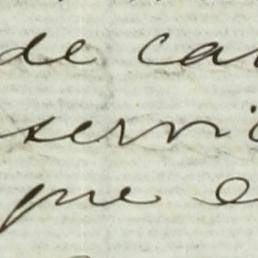 de ca
servi
que e